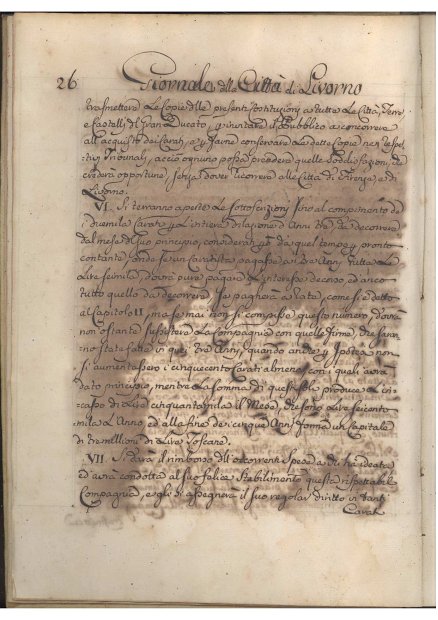 26 Giornale della Città di Livorno
trasmettere Le Copie delle presenti Costituzioni a tutte Le Città, Terre
e Castelli del Gran Ducato, invitare il Pubblico a concorrere
all'acquisto dei Carati, e farne conservare La dette Copie nei
Tribunali, acciò ognuno possa prendere quelle Soddisfazioni, che
crederà opportune, senza dover ricorrere alle Città di Firenze, e di
Livorno.
VI. Si terranno aperte Le Sottoscrizioni fino al compimento de
duemila Carati per L'intiera dilazione d'Anni tre, da decorrere
dal mese di suo principio, considerati da quel tempo per pronto
contante, onde se un Caratista pagasse a tre Anni tutte Le
Lire seimila, dovrà pure pagare L'interesse decorso, ed anco
tutto quello da decorrere Se pagherà a rate, come si è detto
al Capitolo II, ma se mai non si compisse questo numero, dovrà
non ostante sussistere La Compagnia con quelle firme, che saran
no state fatte in quei tre Anni, quando anche per Ipotesi non
si aumentassero i cinquecento Carati almeno, con i quali avrà
dato principio, mentre La Somma di questi soli produce L'in=
casso di Lire cinquantamila il Mese, che sono Lire seicento
mila L'Anno, ed alla fine de' cinque Anni forma un Capitale
di tre millioni di Lire Toscane.
VII. Si darà il rimborso dell'occorrenti Spese a chi ha ideato
ed avrà condotta al suo felice Stabilimento questa rispettabil
Compagnia, e gli si assegnerà il suo regolar diritto in tanti
Carat